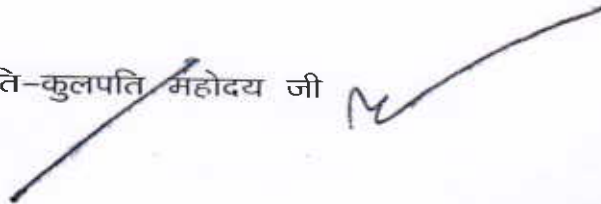 ति-कुलपति महोदय जी